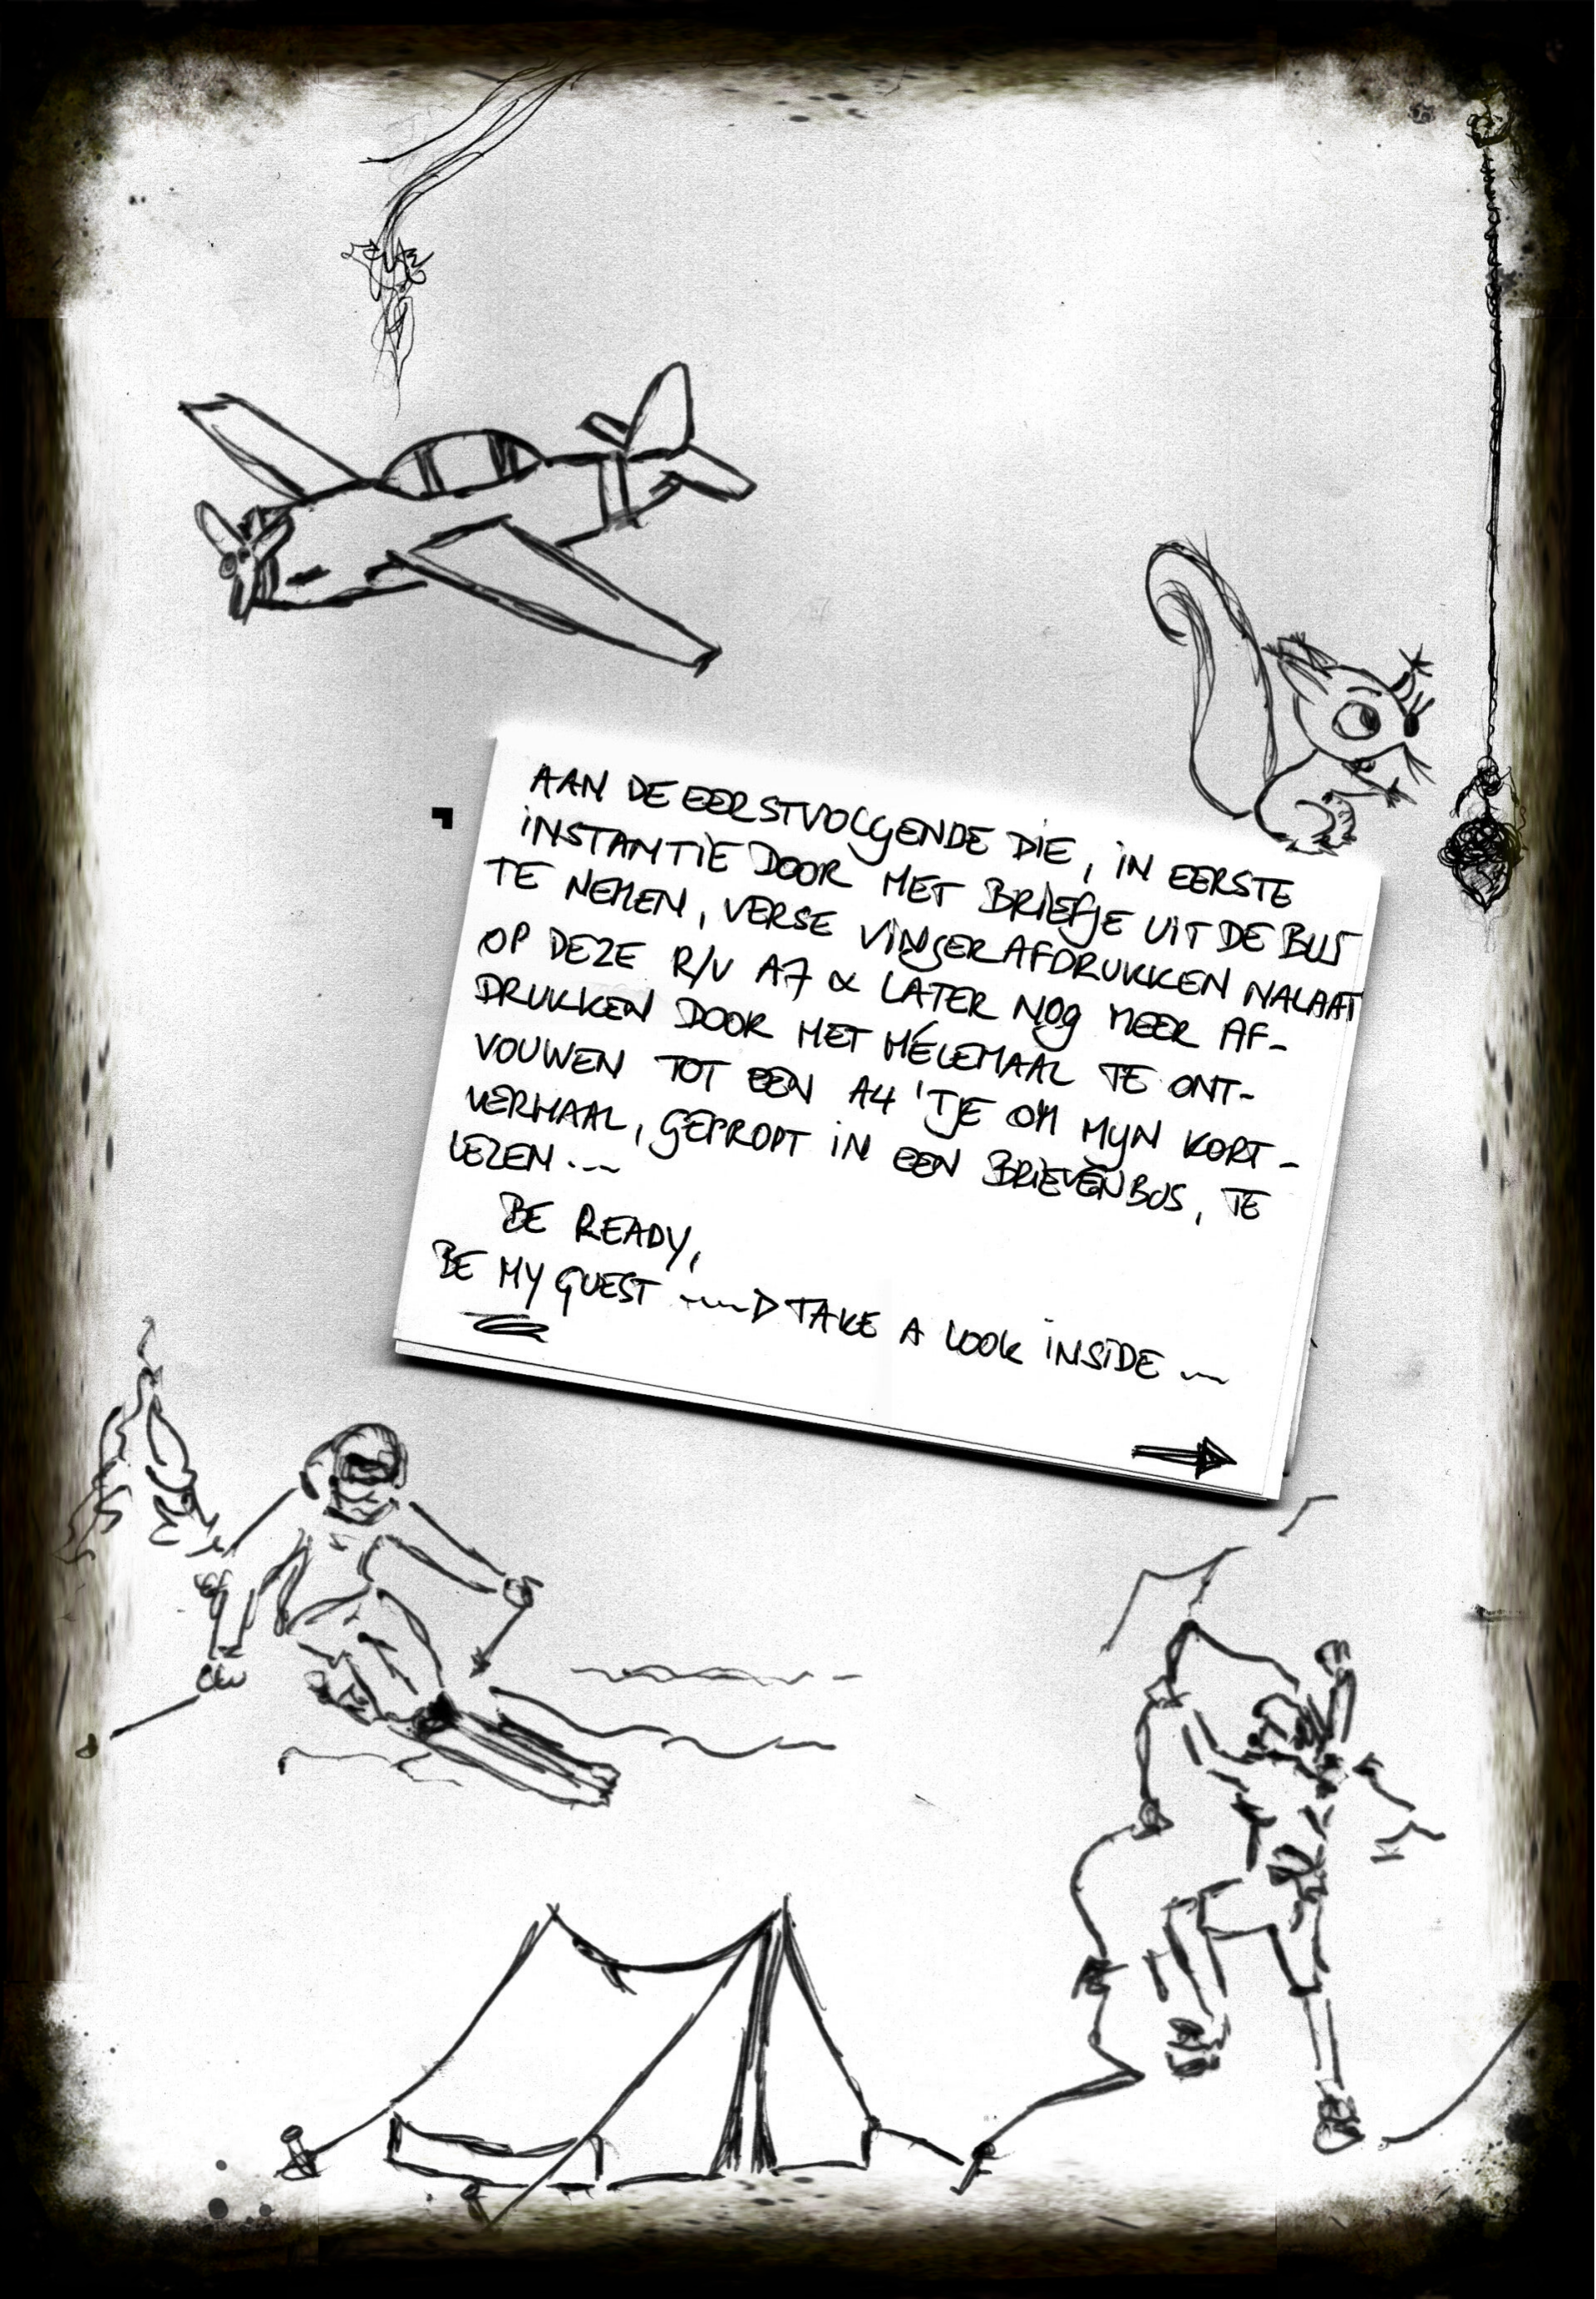 AAN DE EERSTVOLGENDE DIE, IN EERSTE
INSTANTIE DOOR HET BRIEFJE UIT DE BUS
TE NEMEN, VERSE VINGERAFDRUKKEN NALAAT
OP DEZE R/V A7 & LATER NOG MEER AF-
DRUKKEN DOOR HET HÉLEMAAL TE ONT-
VOUWEN TOT EEN A4'TJE OM MIJN KORT-
VERHAAL, GEPROPT IN EEN BRIEVENBUS, TE
LEZEN...
BE READY,
BE MY GUEST ... TAKE A LOOK INSIDE ...